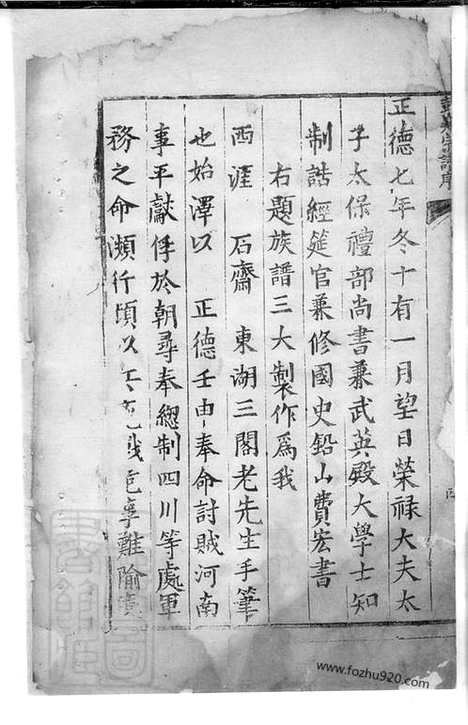 正德七年冬十有一月望日榮祿大夫太
子太保禮部尚書兼武英殿大學士知
制誥經筵官兼修國史鉛山費宏書
右題族譜三大製作爲我
西涯 石齋 東湖三閣老先生手筆
也始澤以 正德壬申奉命討賊河南
事平獻俘於朝尋奉總制四川等處軍
務之命瀕行頃以
事難隃
www.fozhu920.com